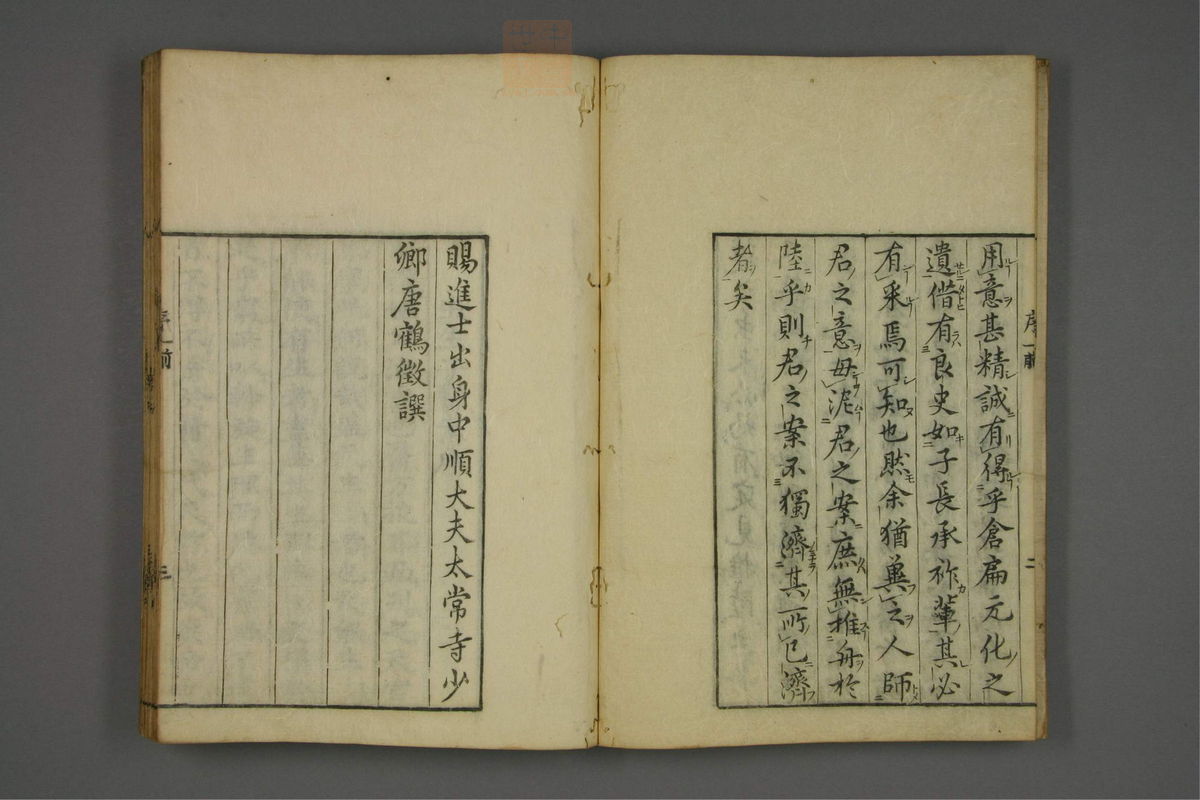 用意甚精誠有得乎倉扁元化之
遺偕有良史如子長承祚輩其必
有采焉可知也然余猶兾之人師
君之意毋泥君之案庶無推舟於
陸乎則君之案不獨濟其所已濟
者矣
賜進士出身中順大夫太常寺少
卿唐鶴徵譔